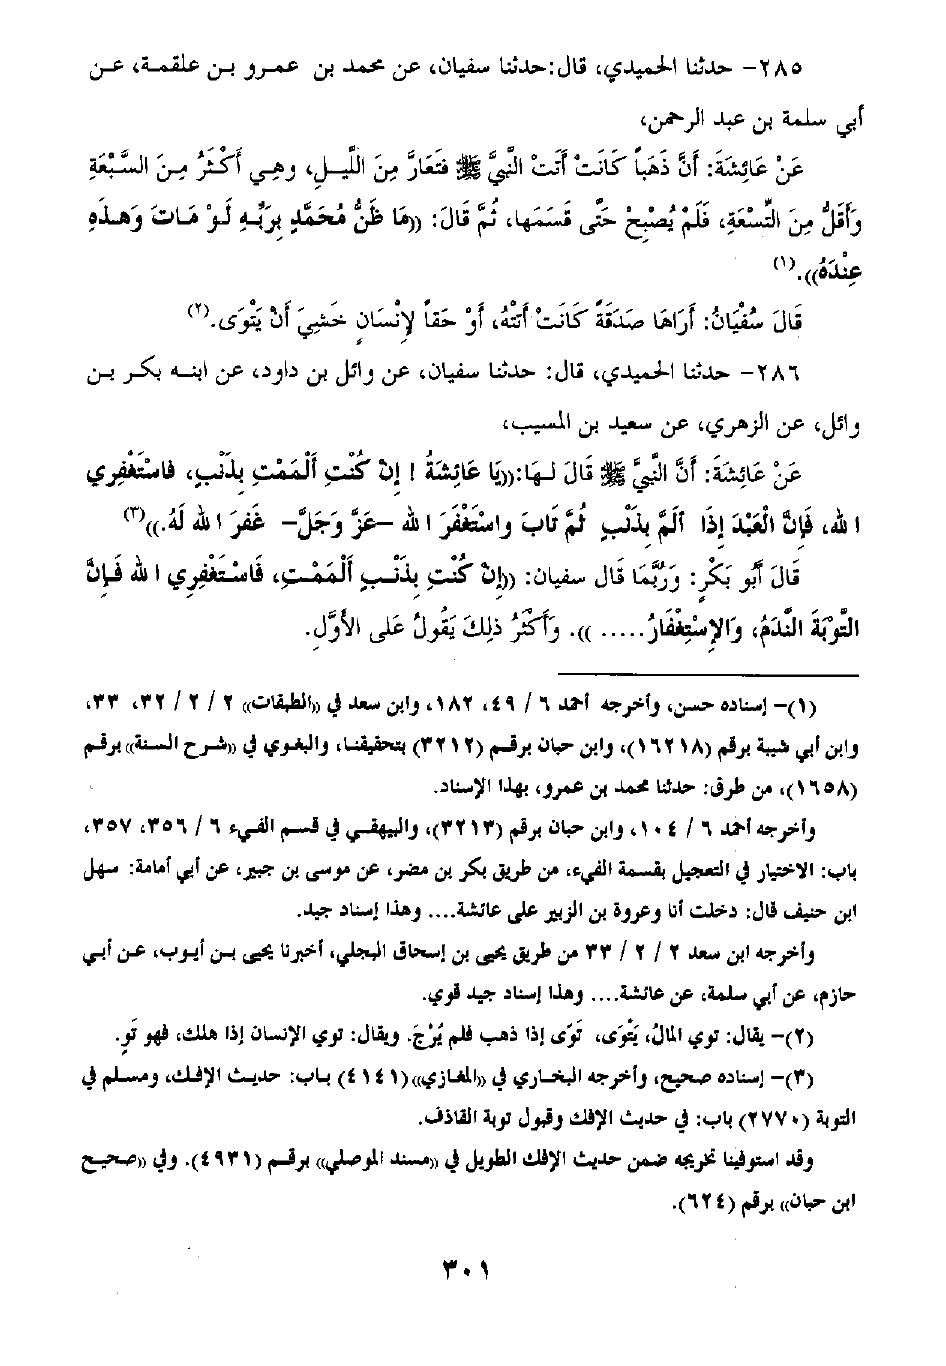 ٢٨٥- حدثنا الحميدي، قال:حدثنا سفيان، عن محمد بن عمرو بن علقمة، عن
أبي سلمة بن عبد الرحمن،
عَنْ عَائِشَةَ: أَنَّ ذَهَباً كَانَتْ أَتَتْ النَّبِيَّ ﷺ فَتَعَارَّ مِنَ اللَّيلِ، وهي أَكْثَرُ مِنَ السَّبْعَةِ
وَأَقَلُّ مِنَ التِّسْعَةِ، فَلَمْ يُصْبِحْ حَتَّى قَسَمَها، ثُمَّ قَالَ: ((مَا ظَنُّ مُحَمَّدٍ بِرَبِّهِ لَوْ مَاتَ وَهَذَهِ
عِنْدَهُ)).(١)
قَالَ سُفْيَانُ: أَرَاهَا صَدَقَةً كَانَتْ أَتَتْهُ، أَوْ حَقاً لإِنْسَانٍ خَشِيَ أَنْ يَتْوَى.(٢)
٢٨٦- حدثنا الحميدي، قال: حدثنا سفيان، عن وائل بن داود، عن ابنه بكر بن
وائل، عن الزهري، عن سعيد بن المسيب،
عَنْ عَائِشَةَ: أَنَّ النَّبِيَّ ﷺ قَالَ لَهَا:((يَا عَائِشَةُ ! إِنْ كُنْتِ أَلْمَمْتِ بِذَنْبٍ، فَاسْتَغْفِرِي
الله، فَإِنَّ الْعَبْدَ إِذَا أَلَمَّ بِذَنْبٍ ثُمَّ تَابَ وَاسْتَغْفَرَ الله -عَزَّ وَجَلَّ- غَفَرَ الله لَهُ.))(٣)
قَالَ أَبُو بَكْرٍ: وَرُبَّمَا قَالَ سفيان: ((إِنْ كُنْتِ بِذَنْبٍ أَلْمَمْتِ، فَاسْتَغْفِرِي الله فَإِنَّ
التَّوْبَةَ النَّدَمُ، وَالإِسْتِغْفَارُ..... )). وَأَكْثَرُ ذلِكَ يَقُولُ عَلى الأَوَّلِ.
(١)- إسناده حسن، وأخرجه أحمد ٦ / ٤٩، ١٨٢، وابن سعد في ((الطبقات)) ٢ / ٢ / ٣٢، ٣٣،
وابن أبي شيبة برقم (١٦٢١٨)، وابن حبان برقم (٣٢١٢) بتحقيقنا، والبغوي في ((شرح السنة)) برقم
(١٦٥٨)، من طرق: حدثنا محمد بن عمرو، بهذا الإسناد.
وأخرجه أحمد ٦ / ١٠٤، وابن حبان برقم (٣٢١٣)، والبيهقي في قسم الفيء ٦ / ٣٥٦، ٣٥٧،
باب: الاختيار في التعجيل بقسمة الفيء، من طريق بكر بن مضر، عن موسى بن جبير، عن أبي أمامة: سهل
ابن حنيف قال: دخلت أنا وعروة بن الزبير على عائشة.... وهذا إسناد جيد.
وأخرجه ابن سعد ٢ / ٢ / ٣٣ من طريق يحيى بن إسحاق البجلي، أخبرنا يحيى بن أيوب، عن أبي
حازم، عن أبي سلمة، عن عائشة.... وهذا إسناد جيد قوي.
(٢)- يقال: توي المالُ، يَتْوَى، تَوًى إذا ذهب فلم يُرْجَ. ويقال: توي الإنسان إذا هلك، فهو تَوٍ.
(٣)- إسناده صحيح، وأخرجه البخاري في ((المغازي))(٤١٤١) باب: حديث الإفك، ومسلم في
التوبة (٢٧٧٠) باب: في حديث الإفك وقبول توبة القاذف.
وقد استوفينا تخريجه ضمن حديث الإفك الطويل في ((مسند الموصلي)) برقم (٤٩٣١). وفي ((صحيح
ابن حبان)) برقم (٦٢٤).
٣٠١